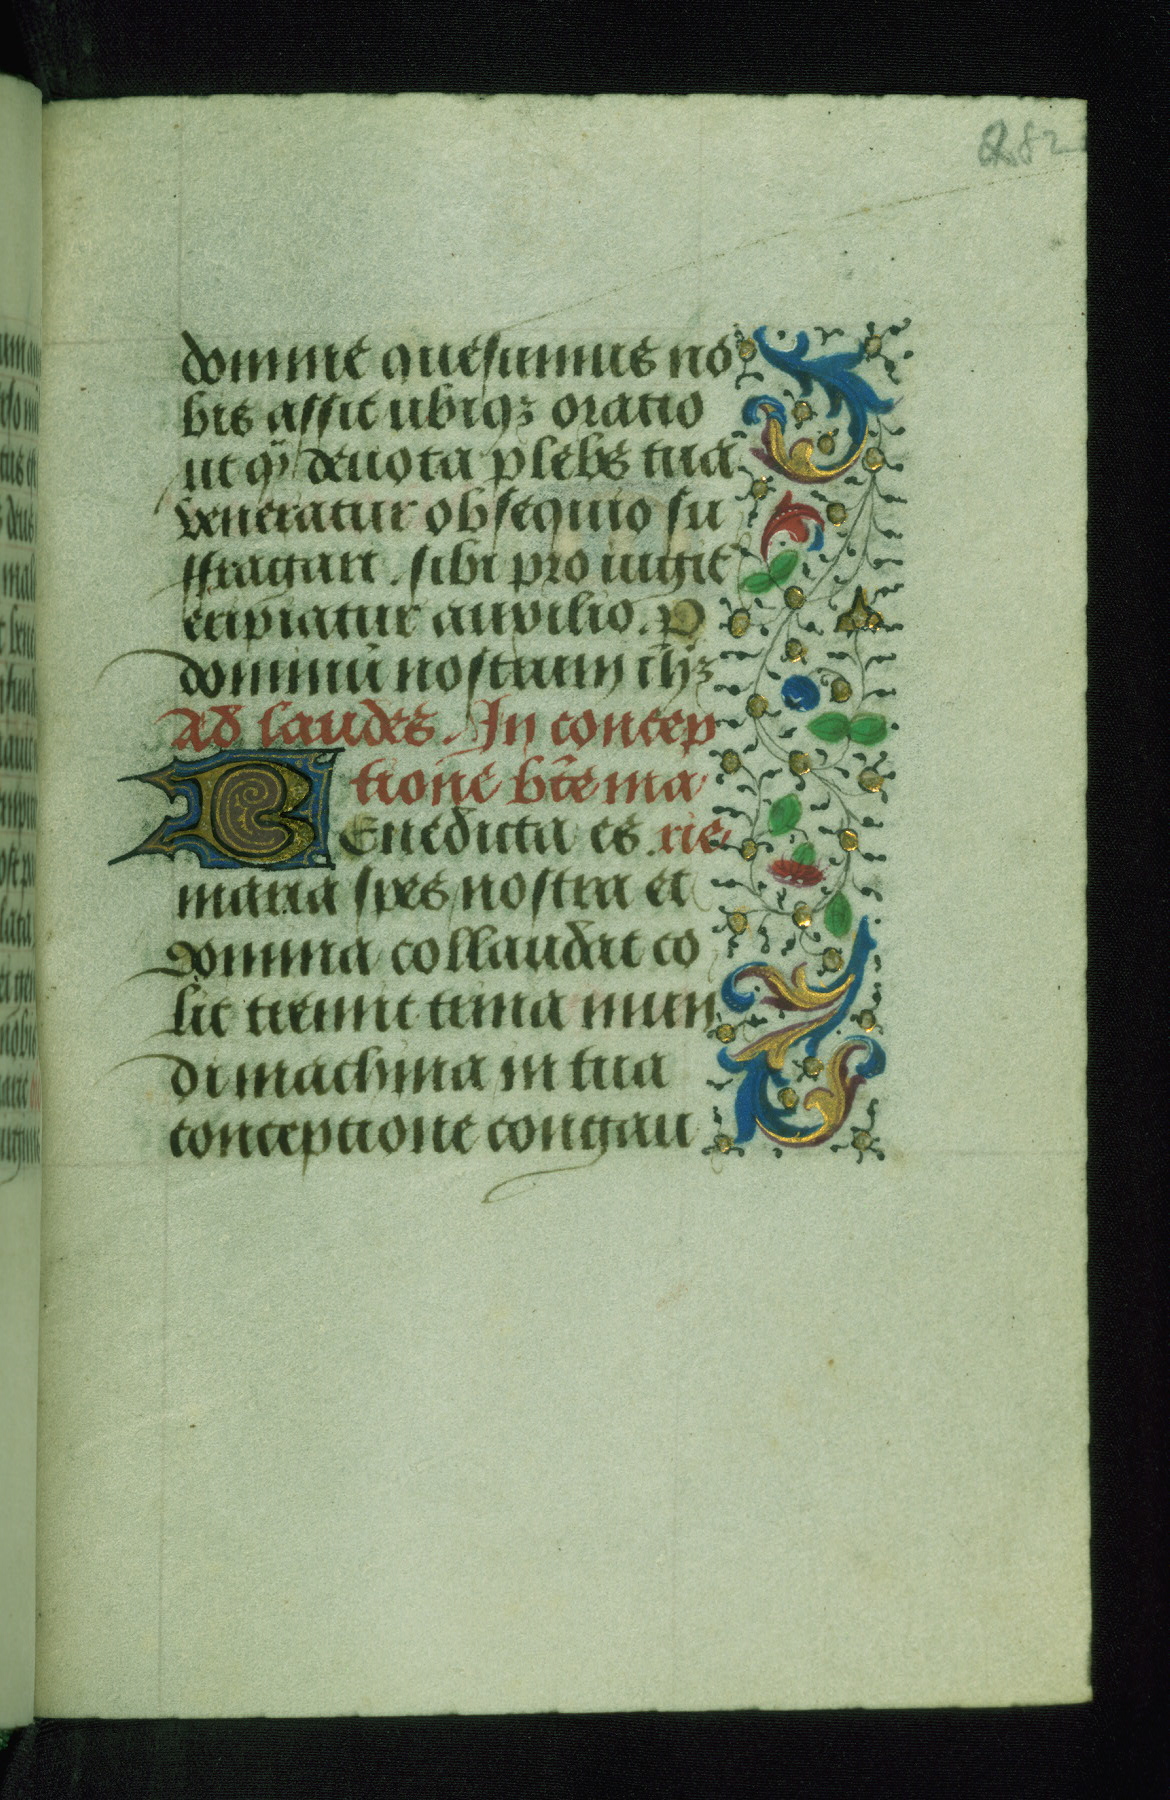 82
domine quesumus no
bis assit ubiqꝫ oratio
ut qͥ deuota plebs tua
veneratur obsequio su
ffragari . sibi pro iugit
eripiatur auxilio. P
dominū nostrum ihꝫ
Ad laudes. In concep
tione bt̄e ma
Enedicta es . rie.
maria spes nostra et
domina collaudat co
lit tremit trina mun
di machina in tua
conceptione congau